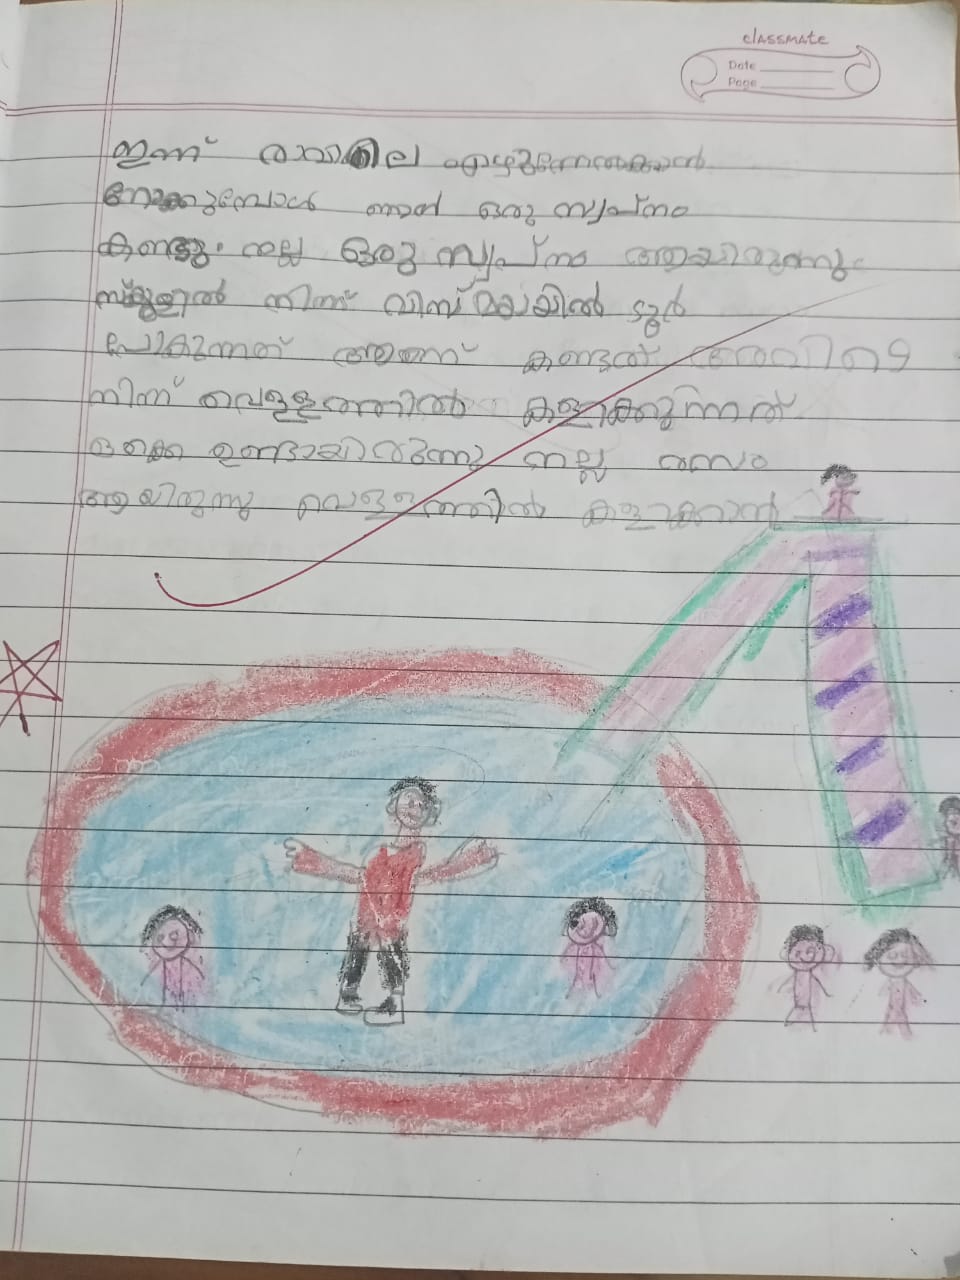 classmate
Date
Page
ഇന്ന് രാവിലെ എഴുന്നേൽക്കാൻ
നോക്കുമ്പോൾ ഞാൻ ഒരു സ്വപ്നം
കണ്ടു. നല്ല ഒരു സ്വപ്നം ആയിരുന്നു
സ്കൂളിൽ നിന്ന് വിസ്മയയിൽ ടൂർ
പോകുന്നത് ആണ് കണ്ടത് അവിടെ
നിന്ന് വെള്ളത്തിൽ കളിക്കുന്നത്
ഒക്കെ ഉണ്ടായിരുന്നു നല്ല രസം
ആയിരുന്നു വെള്ളത്തിൽ കളിക്കാൻ